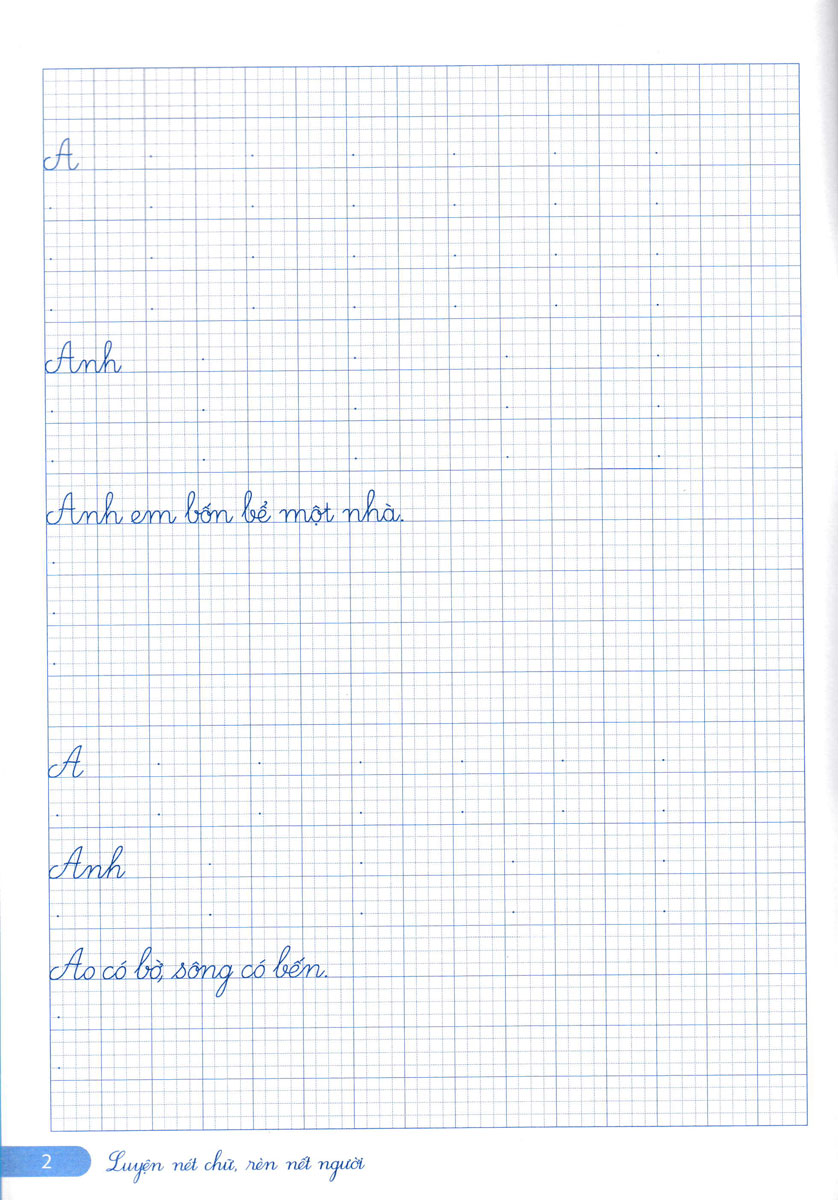 A
Anh
Anh em bốn bể một nhà.
A
Anh
Ao có bờ, sông có bến.
2 Luyện nét chữ, rèn nết người